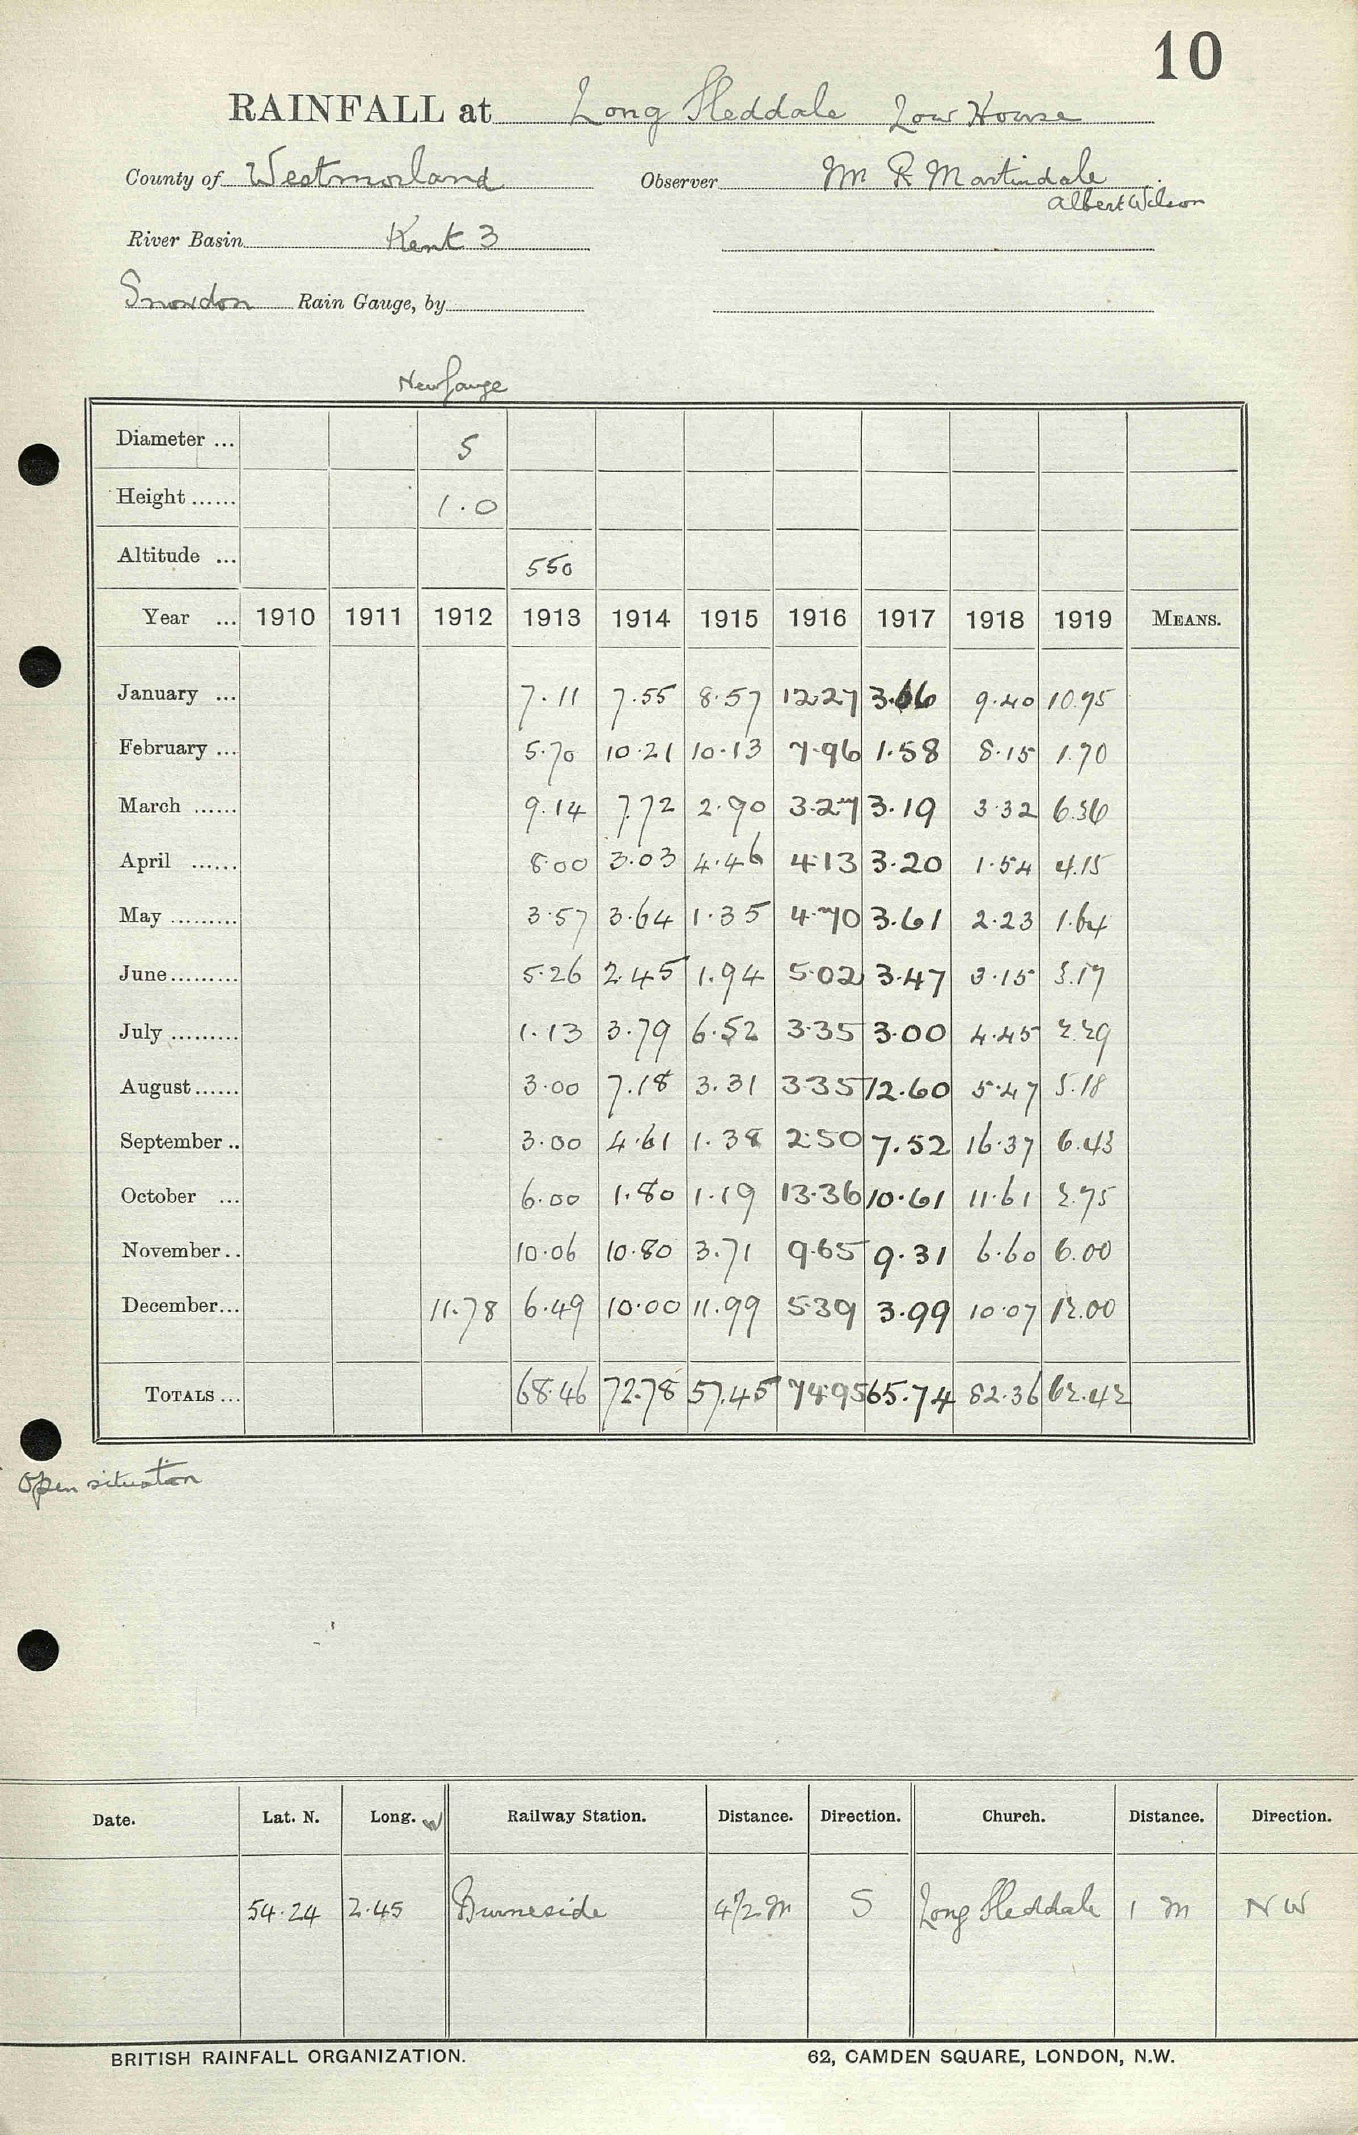 10
RAINFALL at Long Sleddale Low House
County of Westmorland Observer Mr R Martindale
Albert Wilson
River Basin Kent 3
Snowdon Rain Gauge, by
New Gauge
Diameter ... 5
Height ...... 1.0
Altitude ... 550
Year ... 1910 1911 1912 1913 1914 1915 1916 1917 1918 1919 MEANS.
January ... 7.11 7.55 8.57 12.27 3.66 9.40 10.75
February ... 5.70 10.21 10.13 7.96 1.58 8.15 1.70
March ...... 9.14 7.72 2.90 3.27 3.19 3.32 6.36
April ...... 8.00 3.03 4.46 4.13 3.20 1.54 4.15
May ......... 3.57 3.64 1.35 4.70 3.61 2.23 1.64
June......... 5.26 2.45 1.94 5.02 3.47 3.15 3.17
July ......... 1.13 3.79 6.52 3.35 3.00 4.45 2.29
August...... 3.00 7.18 3.31 3.35 12.60 5.47 5.18
September .. 3.00 4.61 1.38 2.50 7.52 16.37 6.43
October ... 6.00 1.80 1.19 13.36 10.61 11.61 2.75
November .. 10.06 10.80 3.71 9.65 9.31 6.60 6.00
December... 11.78 6.49 10.00 11.99 5.39 3.99 10.07 12.00
TOTALS ... 68.46 72.78 57.45 74.95 65.74 82.36 62.42
Open situation
Date. Lat. N. Long. W Railway Station. Distance. Direction. Church. Distance. Direction.
54.24 2.45 Burneside 4½ m S Long Sleddale 1 m NW
BRITISH RAINFALL ORGANIZATION. 62, CAMDEN SQUARE, LONDON, N.W.